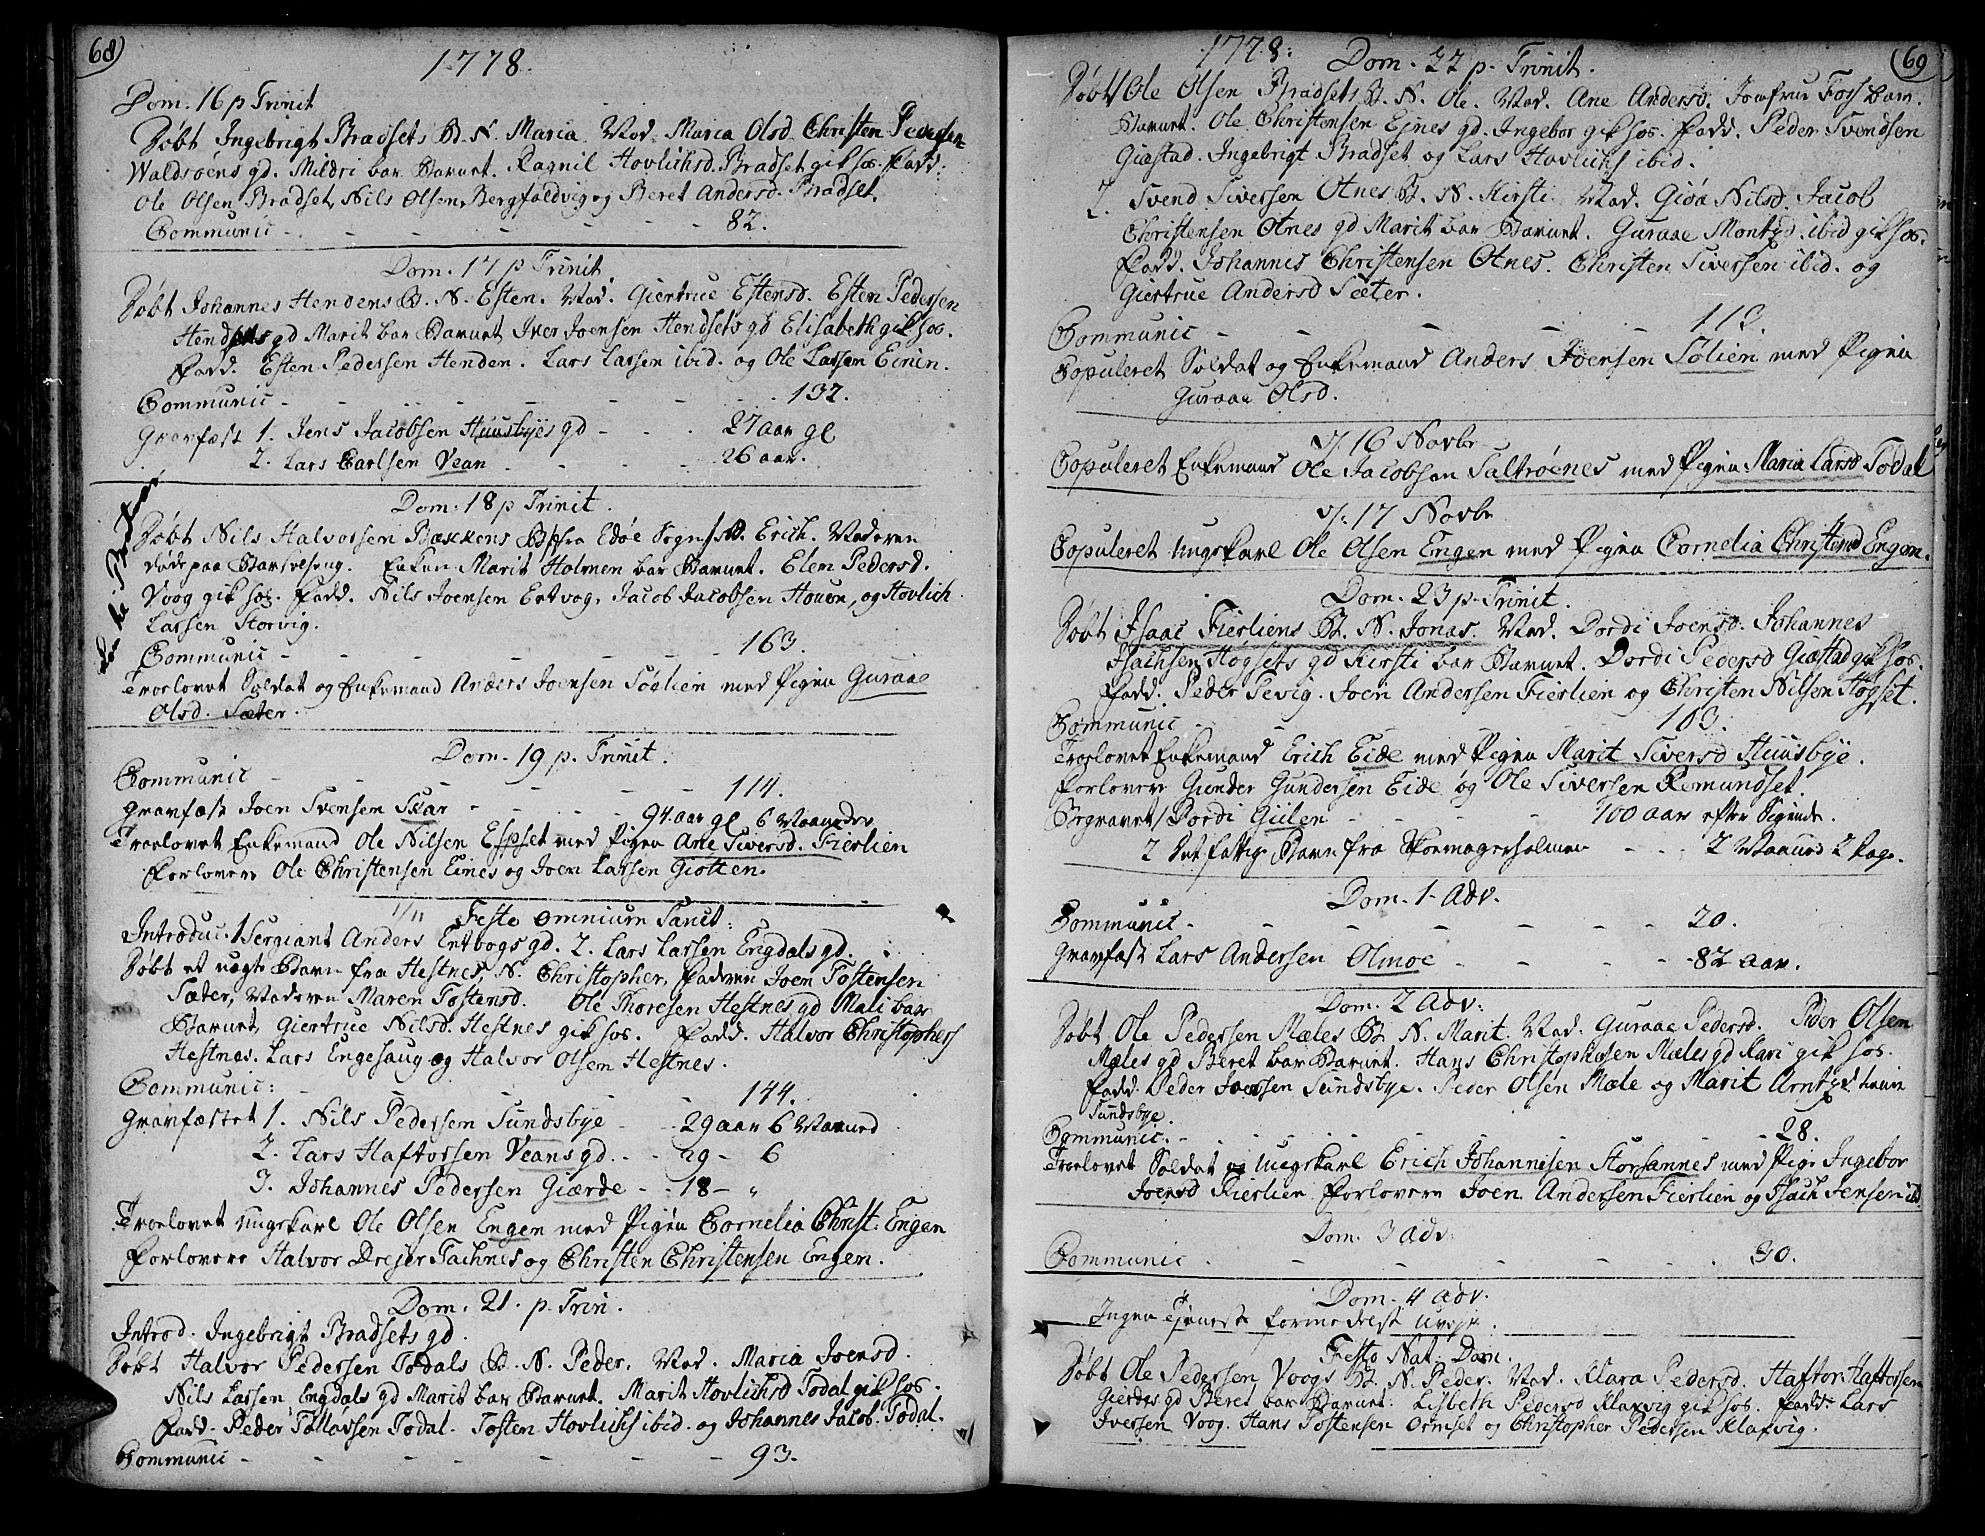 68
1778.
Dom. 16 p Trinit
Døbt Ingebrigt Bradsets B. N. Maria. Mod. Maria Olsd. Christen Pedersen
Waldsøens gd. Mildri bar Barnet. Ragnil Hovlichsd. Bradset gik hos. Fadd:
Ole Olsen Bradset, Nils Olsen Bergfaldvig og Beret Andersd. Bradset.
Communic - - - - - 82.
Dom. 17 p Trinit
Døbt Johannes Hendens B. N. Esten. Mod. Giertrue Estensd. Esten Pedersen
Hendsets gd Marit bar Barnet Iver Joensen Hendsets gd Elisabeth gik hos.
Fadd. Esten Pedersen Henden. Lars Larsen ibid. og Ole Larsen Eirin.
Communic - - - - - 132.
Gravfæst 1. Jens Jacobsen Huusbyes gd - - - 27 aar gl
2. Lars Carlsen Vean - - - - 26 aar.
Dom. 18 p Trinit.
Døbt Nils Halvorsen Bækkens B. fra Edøe Sogn N. Erich. Moderen
døde paa Barselseng. Enken Marit Holmen bar Barnet. Elen Pedersd.
Voog gik hos. Fadd. Nils Joensen Ertvog, Jacob Jacobsen Houen, og Hovlich
Larsen Storvig.
Communic - - - - - 163.
Troelovet Soldat og Enkemand Anders Joensen Søglien med Pigen Guraae
Olsd. Sæter.
Dom. 19 p. Trinit.
Communic - - - - - 114.
Gravfæst Joen Svensen Skar - - - - 94 aar gl 6 Maaneder
Troelovet Enkemand Ole Nilsen Espset med Pigen Ane Siversd. Fierlien
Forlovere Ole Christensen Eines og Joen Larsen Giøtten.
1/11 Festo omnium Sanct:
Introduc. 1 Sergiant Anders Ertvogs gd. 2. Lars Larsen Engdals gd.
Døbt et uægte Barn fra Hestnes N. Christopher, Faderen Joen Tostensen
Sæter, Moderen Maren Tostensd. Ole Thoresen Hestnes gd Mali bar
Barnet, Giertrue Nilsd. Hestnes gik hos. Fadd. Halvor Christophers
Hestnes. Lars Engesaug og Halvor Olsen Hestnes.
Communic: - - - - - 144.
Gravfæstet 1. Nils Pedersen Sundsbye - - 29 aar 6 Maaned
2. Lars Haftorsen Veans gd. - - 29 - 6
3. Johannes Pedersen Giærde - - 18 - "
Troelovet Ungskarl Ole Olsen Engen med Pigen Cornelia Christ: Engen
Forlovere Halvor Drejer Tachnes og Christen Christensen Engen.
Dom. 21. p. Trin.
Introd. Ingebrigt Bradsets gd.
Døbt Halvor Pedersen Todals B. N. Peder. Mod. Maria Joensd.
Nils Larsen Engdals gd Marit bar Barnet. Marit Hovlichsd Todal gik hos.
Fadd. Peder Tollavsen Todal. Tosten Hovlichs ibid. og Johannes Jacob. Todal.
Communic - - - - - 93.
69
1778: Dom. 22 p. Trinit.
Døbt Ole Olsen Bradsets B. N. Ole. Mod. Ane Andersd. Jomfrue Fors bar
Barnet. Ole Christensen Eines gd. Ingebor gik hos. Fadd. Peder Svendsen
Giæstad. Ingebrigt Bradset og Lars Hovlichs ibid.
2. Svend Siversen Otnes B. N. Kirsti. Mod. Giøa Nilsd. Jacob
Christensen Otnes gd Marit bar Barnet. Guraae Montzd. ibid gik hos.
Fadd. Johannes Christensen Otnes. Christen Siversen ibid. og
Giertrue Andersd Sæter.
Communic - - - - 113.
Copuleret Soldat og Enkemand Anders Joensen Sølien med Pigen
Guraae Olsd.
d. 16 Novbr
Copuleret Enkemand Ole Jacobsen Saltrøenes med Pigen Maria Larsd Todal
d. 17 Novbr
Copuleret Ungskarl Ole Olsen Engen med Pigen Cornelia Christensd Engen.
Dom. 23 p. Trinit.
Døbt Isaac Fierliens B. N. Jonas. Mod. Dordi Joensd. Johannes
Isachsen Hogsets gd Kirsti bar Barnet. Dordi Pedersd Giæstad gik hos.
Fadd. Peder Tevig. Joen Andersen Fierlien og Christen Nilsen Høgset.
Communic - - - - 103.
Troelovet Enkemand Erich Eide med Pigen Marit Siversd Huusbye.
Forlovere Gunder Gundersen Eide og Ole Siversen Remundset.
Begravet 1 Dordi Giilen - - - - 100 aar efter Sigende.
2 Det fattige Barn fra Skomagerholmen - - - 2 Maaned 2 Dage.
Dom. 1. Adv.
Communic. - - - - - 20.
Gravfæst Lars Andersen Olmoe - - - - 82 aar.
Dom. 2 Adv:
Døbt Ole Pedersen Mæles B. N. Marit. Mod. Guraae Pedersd. Peder Olsen
Mæles gd Beret bar Barnet. Hans Christophersen Mæles gd Kari gik hos.
Fadd. Peder Joensen Sundsbye. Peder Olsen Mæle og Marit Arntzd
Sundsbye.
Communic. - - - - - 28.
Troelovet Soldat og Ungskarl Erich Johannesen Storsannes med Pige Ingebor
Joensd Fierlien Forlovere Joen Andersen Fierlien og Isach Jensen ibd.
Dom. 3 Adv:
Communic. - - - - - 30.
Dom. 4 Adv.
Ingen Tjeneste formedelst Uvejr.
Festo Nat. Dom.
Døbt Ole Pedersen Voogs B. N. Peder. Mod. Klara Pedersd. Haftor Haftorsen
Gierdes gd Beret bar Barnet. Lisbeth Pedersd Klakvig gik hos. Fadd. Lars
Iversen Voog. Hans Tostensen Ormset og Christopher Pedersen Klafvig.